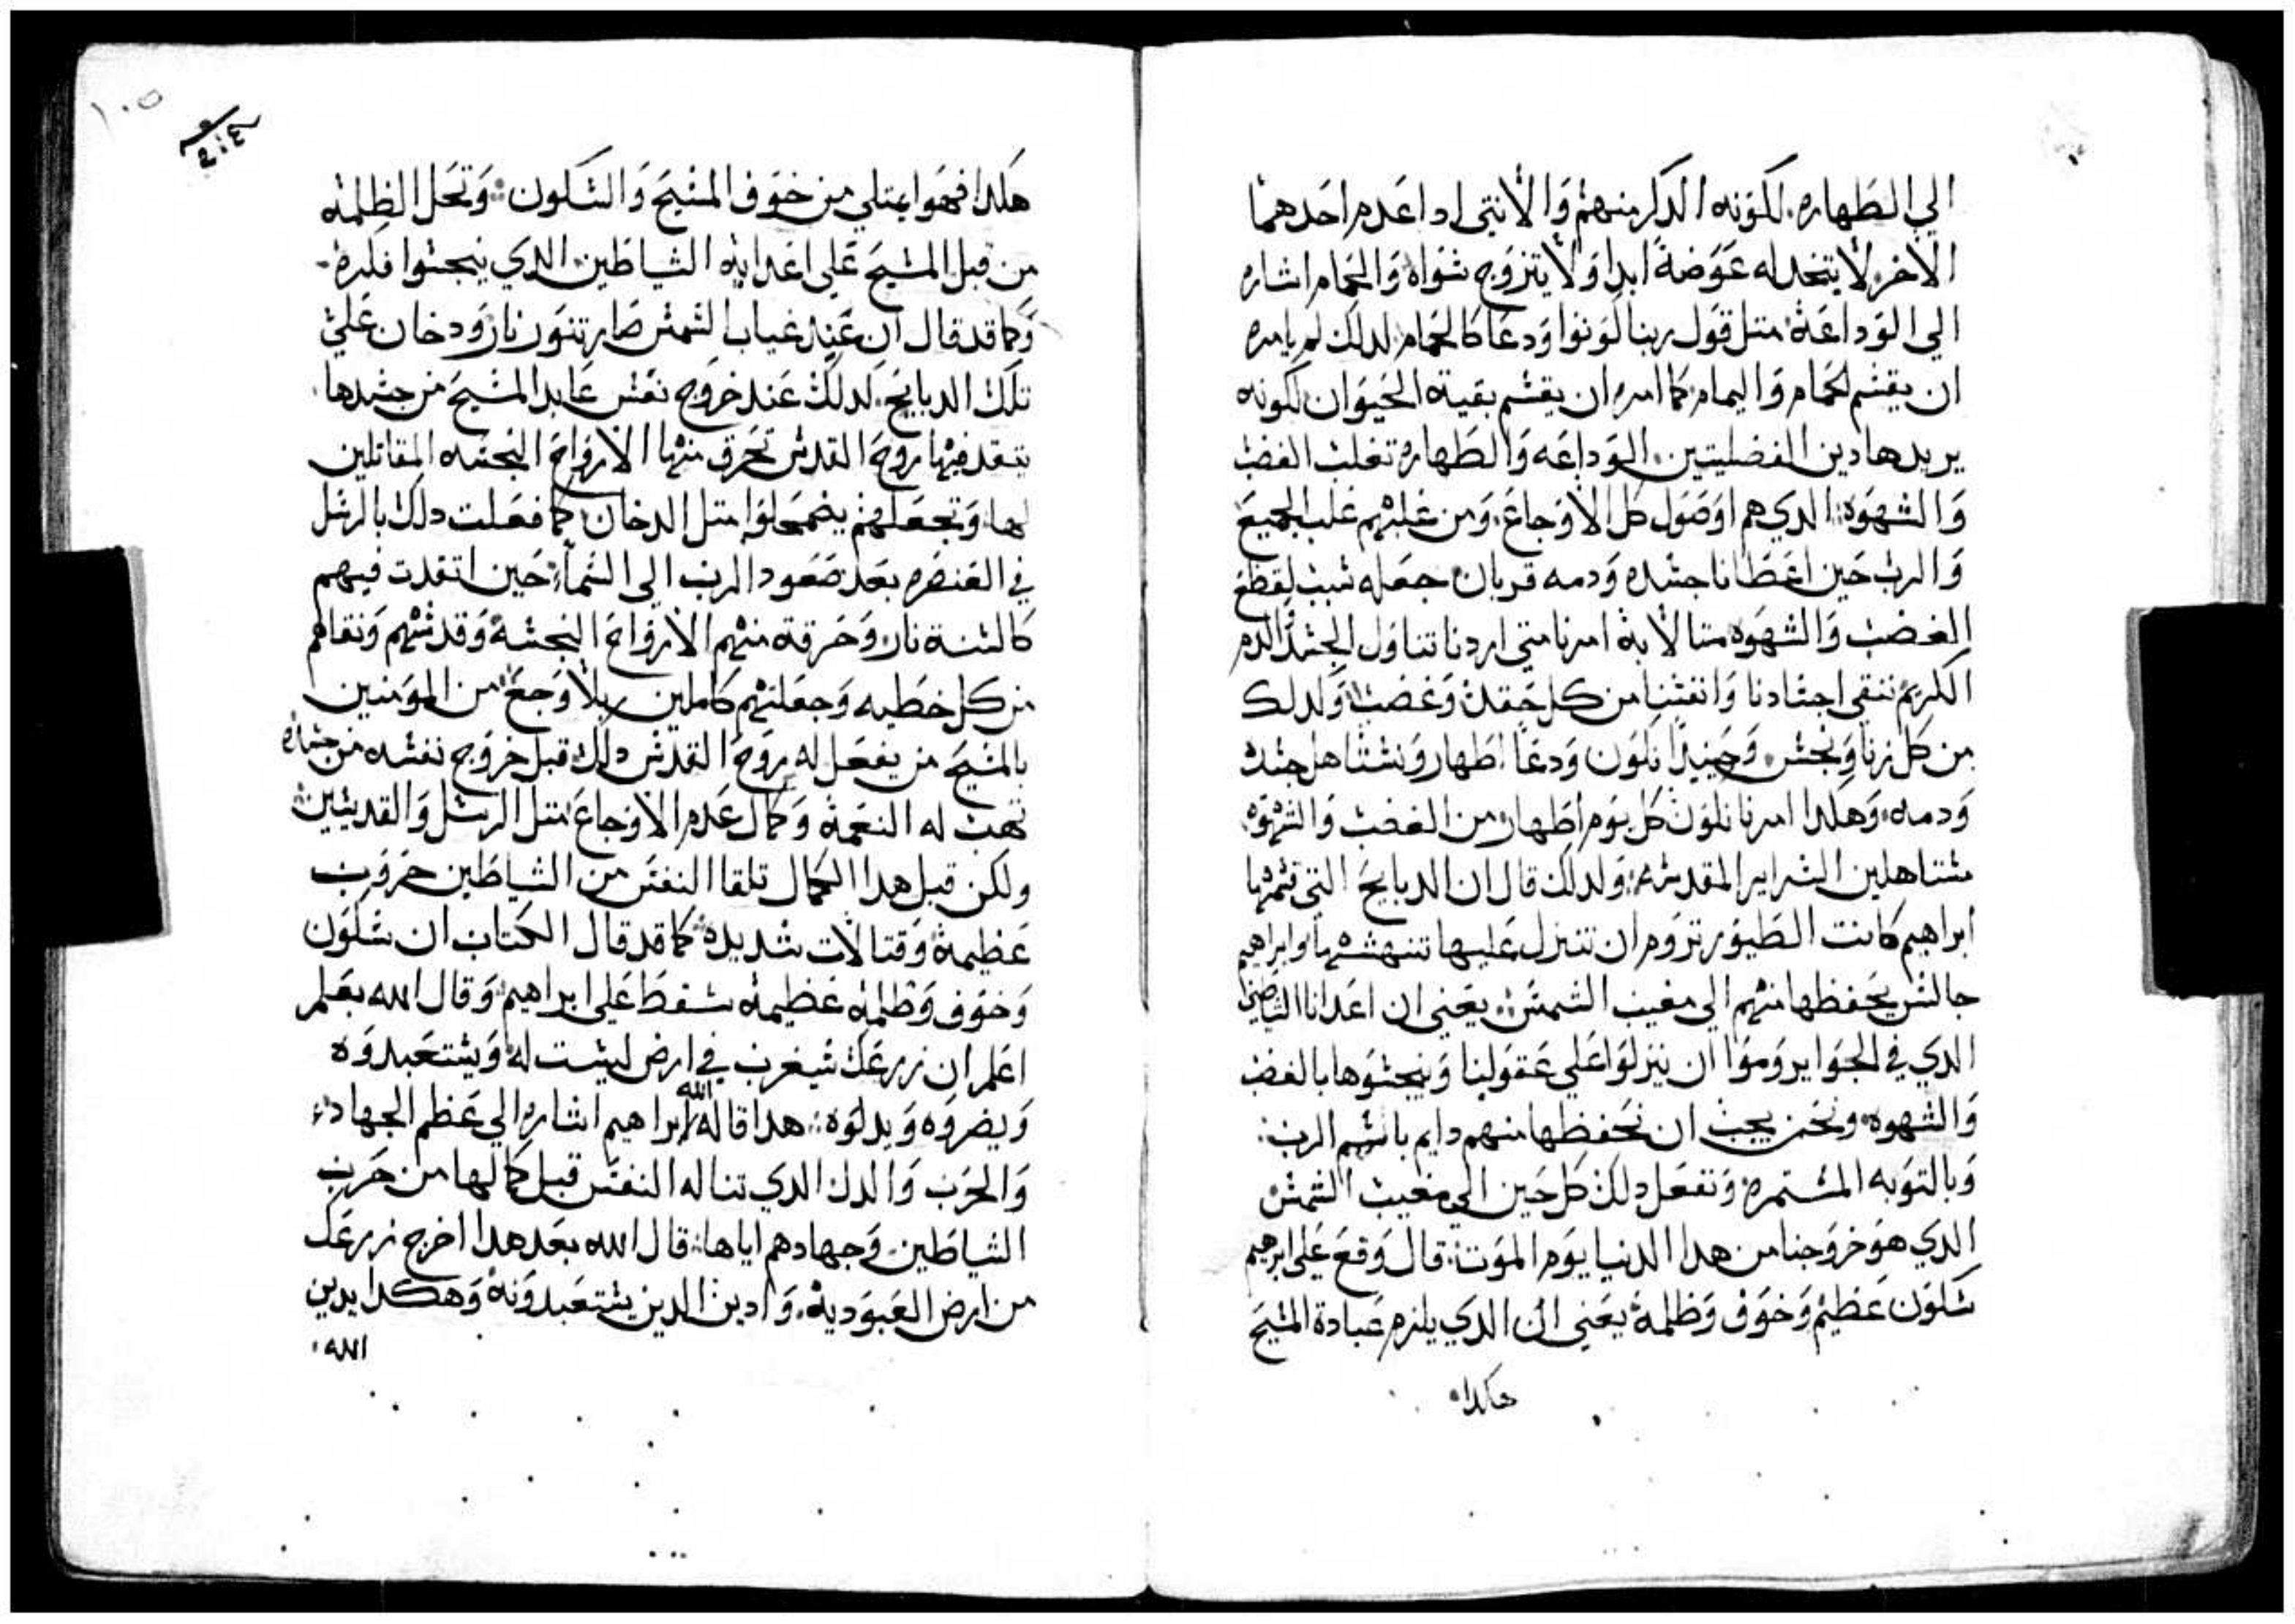 الي الطهاره. لكونه الدكر منهم والانتي ادا عدم احدهما
الاخر لا يتخد له عوضة ابدا ولا يتزوج شواه والحمام اشاره
الي الوداعة متل قول ربنا كونوا ودعا كالحمام لدلك لم يامره
ان يقشم الحمام واليمام كما امره ان يقشم بقية الحيوان لكونه
يريد هادين الفضليتين الوداعه والطهاره تغلب الغضب
والشهوه الدي هم اوصول كل الاوجاع. ومن غلبهم غلب الجميع
والرب حين اعطانا جشده ودمه قربان جعله شبب لقطع
الغضب والشهوه منا لانه امرنا متي اردنا تناول الجشد والدم
الكريم ننقي اجشادنا وانفشنا من كل حقد وغضب ولدلك
من كل زنا ونجش وحينيدا نكون ودعا اطهار ونشتاهل جشده
ودمه. وهكدا امرنا نكون كل يوم اطهار من الغضب والشهوه
مشتاهلين الشراير المقدشه. ولدلك قال ان الدبايح التي قشمها
ابراهيم كانت الطيور تروم ان تنزل عليها تنهشها وابراهيم
جالش يحفظها منهم الي مغيب الشمش يعني ان اعدانا الشياطين
الدي في الجوا يروموا ان ينزلوا علي عقولنا وينجشوها بالغضب
والشهوه ونحن يجب ان نحفظها منهم دايم باشم الرب.
وبالتوبه المشتمره ونفعل دلك كل حين الي مغيب الشمش
الدي هو خروجنا من هدا الدنيا يوم الموت. قال وقع علي ابرهيم
شكون عظيم وخوف وظلمة يعني ان الدي يلزم عبادة المشيح
هكدا
١٠٥
هكدا فهوا يمتلي من خوف المشيح والشكون. وتحل الظلمه
من قبل المشيح علي اعدايه الشياطين الدي ينجشوا فكره
وكما قد قال ان عند غياب الشمش صار تنون نار ودخان علي
تلك الدبايح. كدلك عند خروج نفش عابد المشيح من جشدها
يتقد فيها روح القدش تحرق منها الارواح النجشه المقاتلين
لها. وتجعلهم يضمحلوا متل الدخان كما فعلت دلك بالرشل
في العنصره بعد صعود الرب الي الشما حين اتقدت فيهم
كالشنة نار وحرقة منهم الارواح النجشة وقدشتهم ونقاهم
من كل خطيه وجعلتهم كاملين بلا وجع من المومنين
بالمشيح من يفعل له روح القدش دلك قبل خروج نفشه من جشده
تهب له النعمة وكمال عدم الاوجاع متل الرشل والقديشين
ولكن قبل هدا الكمال تلقا النفش من الشياطين حروب
عظيمة وقتالات شديده كما قد قال الكتاب ان شكون
وخوف وظلمه عظيمه شقط علي ابراهيم وقال الله بعلم
اعلم ان زرعك شيغرب في ارض ليشت له ويشتعبدوه
ويضروه ويدلوه. هدا قاله الله لابراهيم اشاره الي عظم الجهاد
والحرب والدل الدي تناله النفش قبل كمالها من حرب
الشياطين وجهادهم اياها. قال الله بعد هدا اخرج زرعك
من ارض العبودية. وادين الدين يشتعبدونه وهكدا يدين
الله